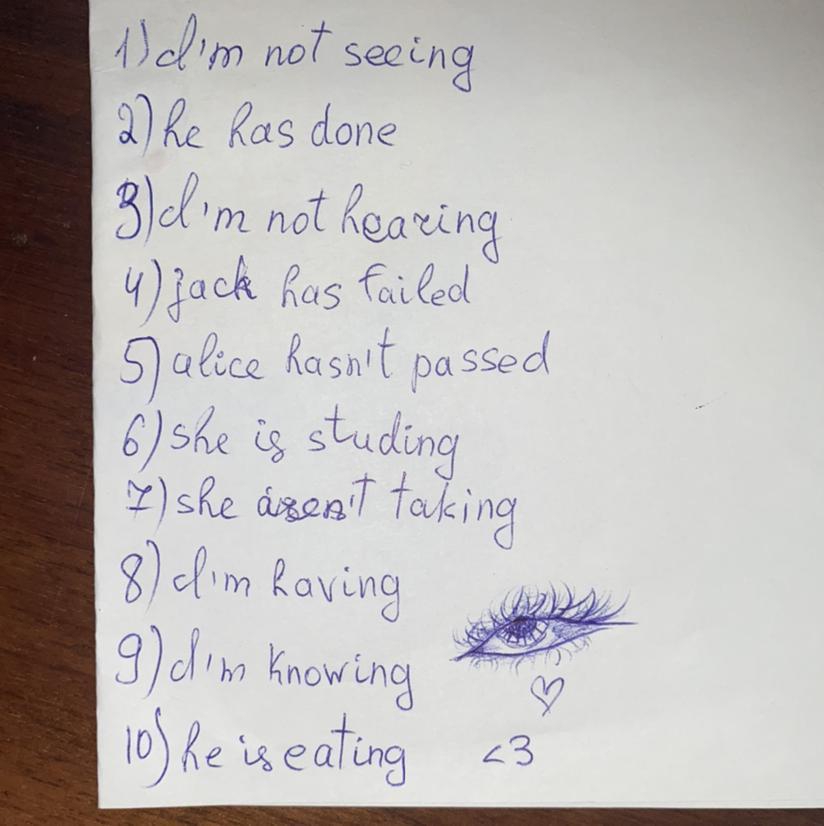 1) I'm not seeing
2) he has done
3) I'm not hearing
4) jack has failed
5) alice hasn't passed
6) she is studing
7) she taking
8) I'm having
9) I'm knowing
10) he is eating <3